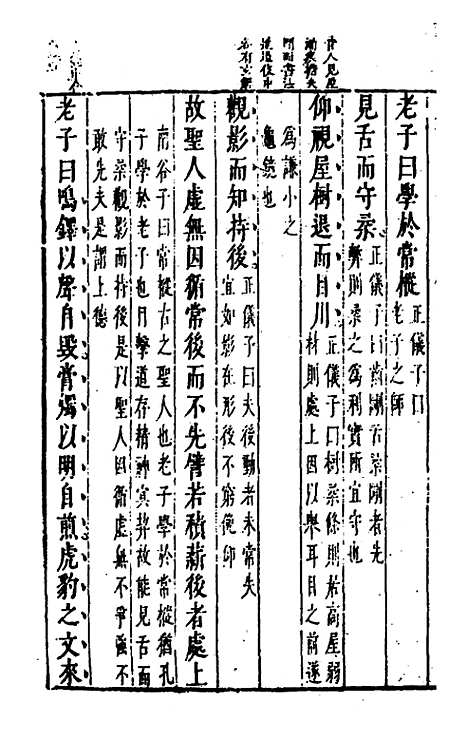 昔人見屋
而悟書法
老子曰學於常樅
正儀子曰
老子之師
見舌而守柔
正儀子曰齒剛舌柔剛者先
弊則柔之為利實所宜守也
仰視屋樹退而目川
正儀子曰樹柔條則若高屋弱
材則處上因以舉耳目之前遂
為謙小之
龜鏡也
觀影而知持後
正儀子曰夫後動者未常失
宜如影在形後不窮使仰
故聖人虛無因循常後而不先譬若積薪後者處上
南谷子曰常樅古之聖人也老子學於常樅猶孔
子學於老子也目擊道存精神冥契故能見舌而
守柔觀影而持後是以聖人因循虛無不爭強不
敢先夫是謂上德
老子曰鳴鐸以聲自毀膏燭以明自煎虎豹之文來